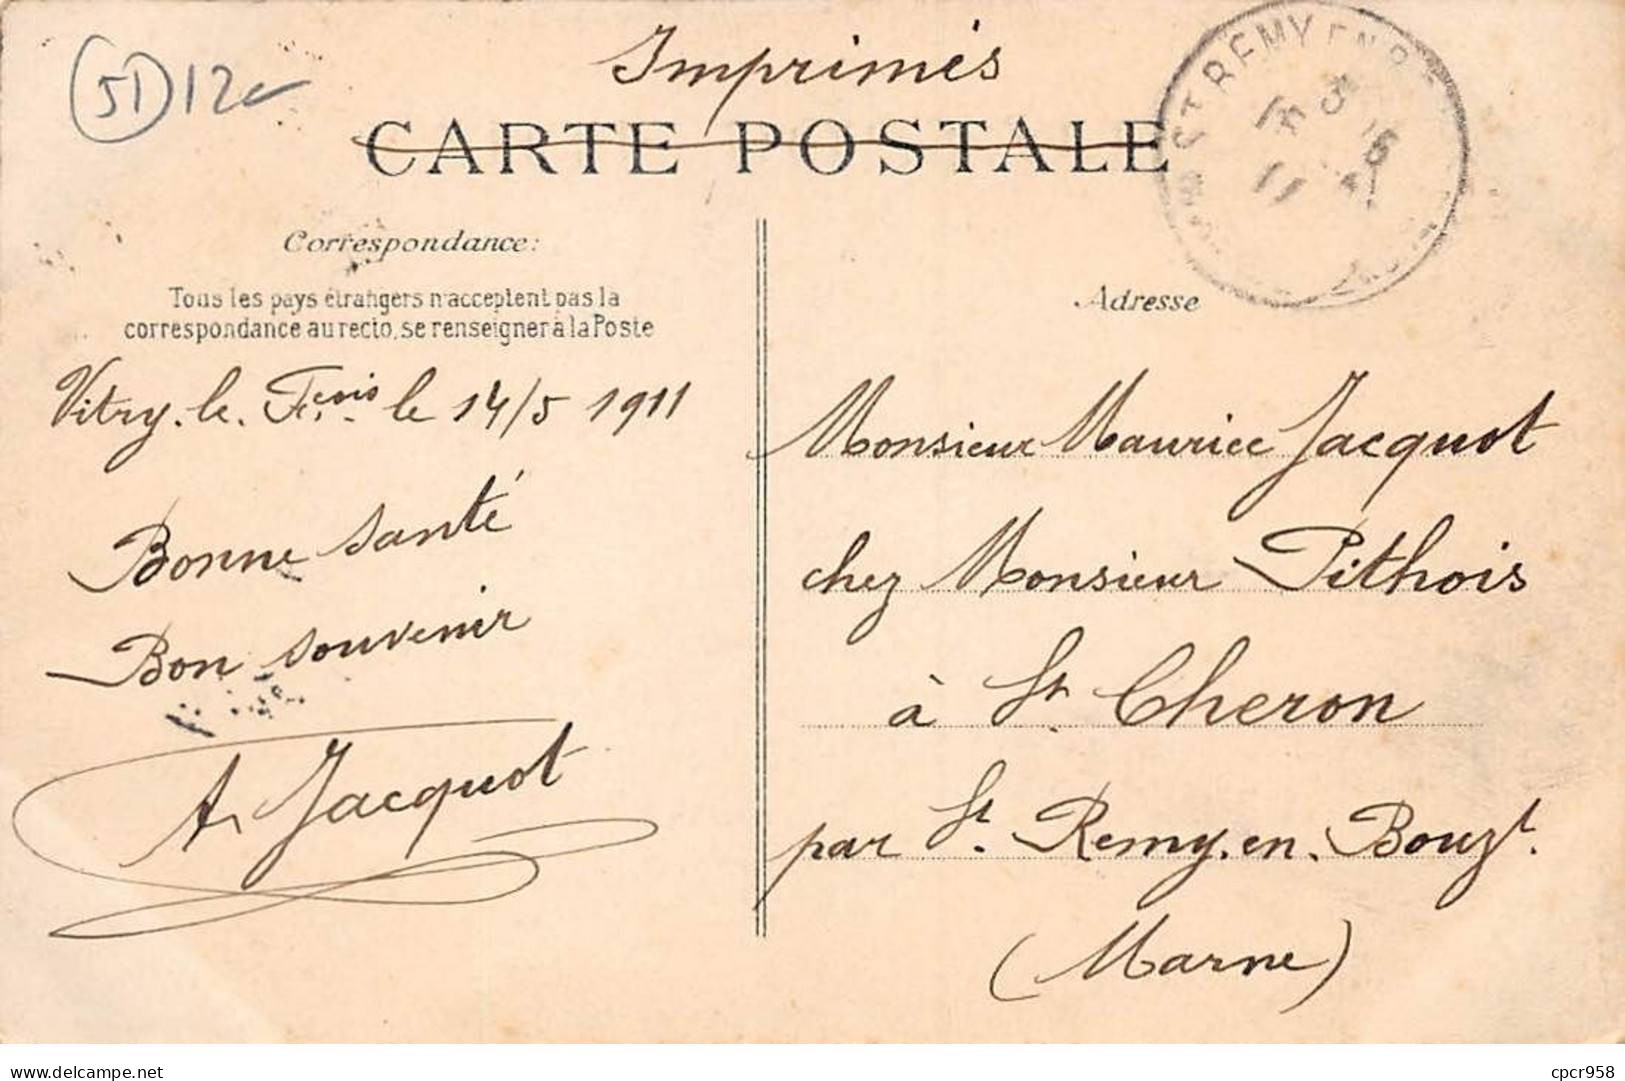 (51) 12
Imprimés
CARTE POSTALE
ST REMY EN
Correspondance:
Tous les pays étrangers n'acceptent pas la
correspondance au recto, se renseigner à la Poste
Vitry. le. Fçois. le 14/5 1911
Bonne santé
Bon souvenir
A. Jacquot
Adresse
Monsieur Maurice Jacquot
chez Monsieur Pithois
à St Cheron
par St. Remy. en. Bouzt.
(Marne)
cpcr958